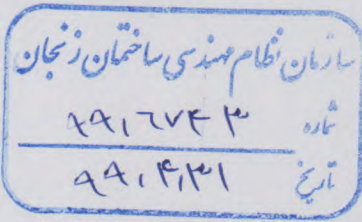 سازمان نظام مهندسی ساختمان زنجان
شماره ۹۹,۶۷۴۳
تاریخ ۹۹,۴,۳۱